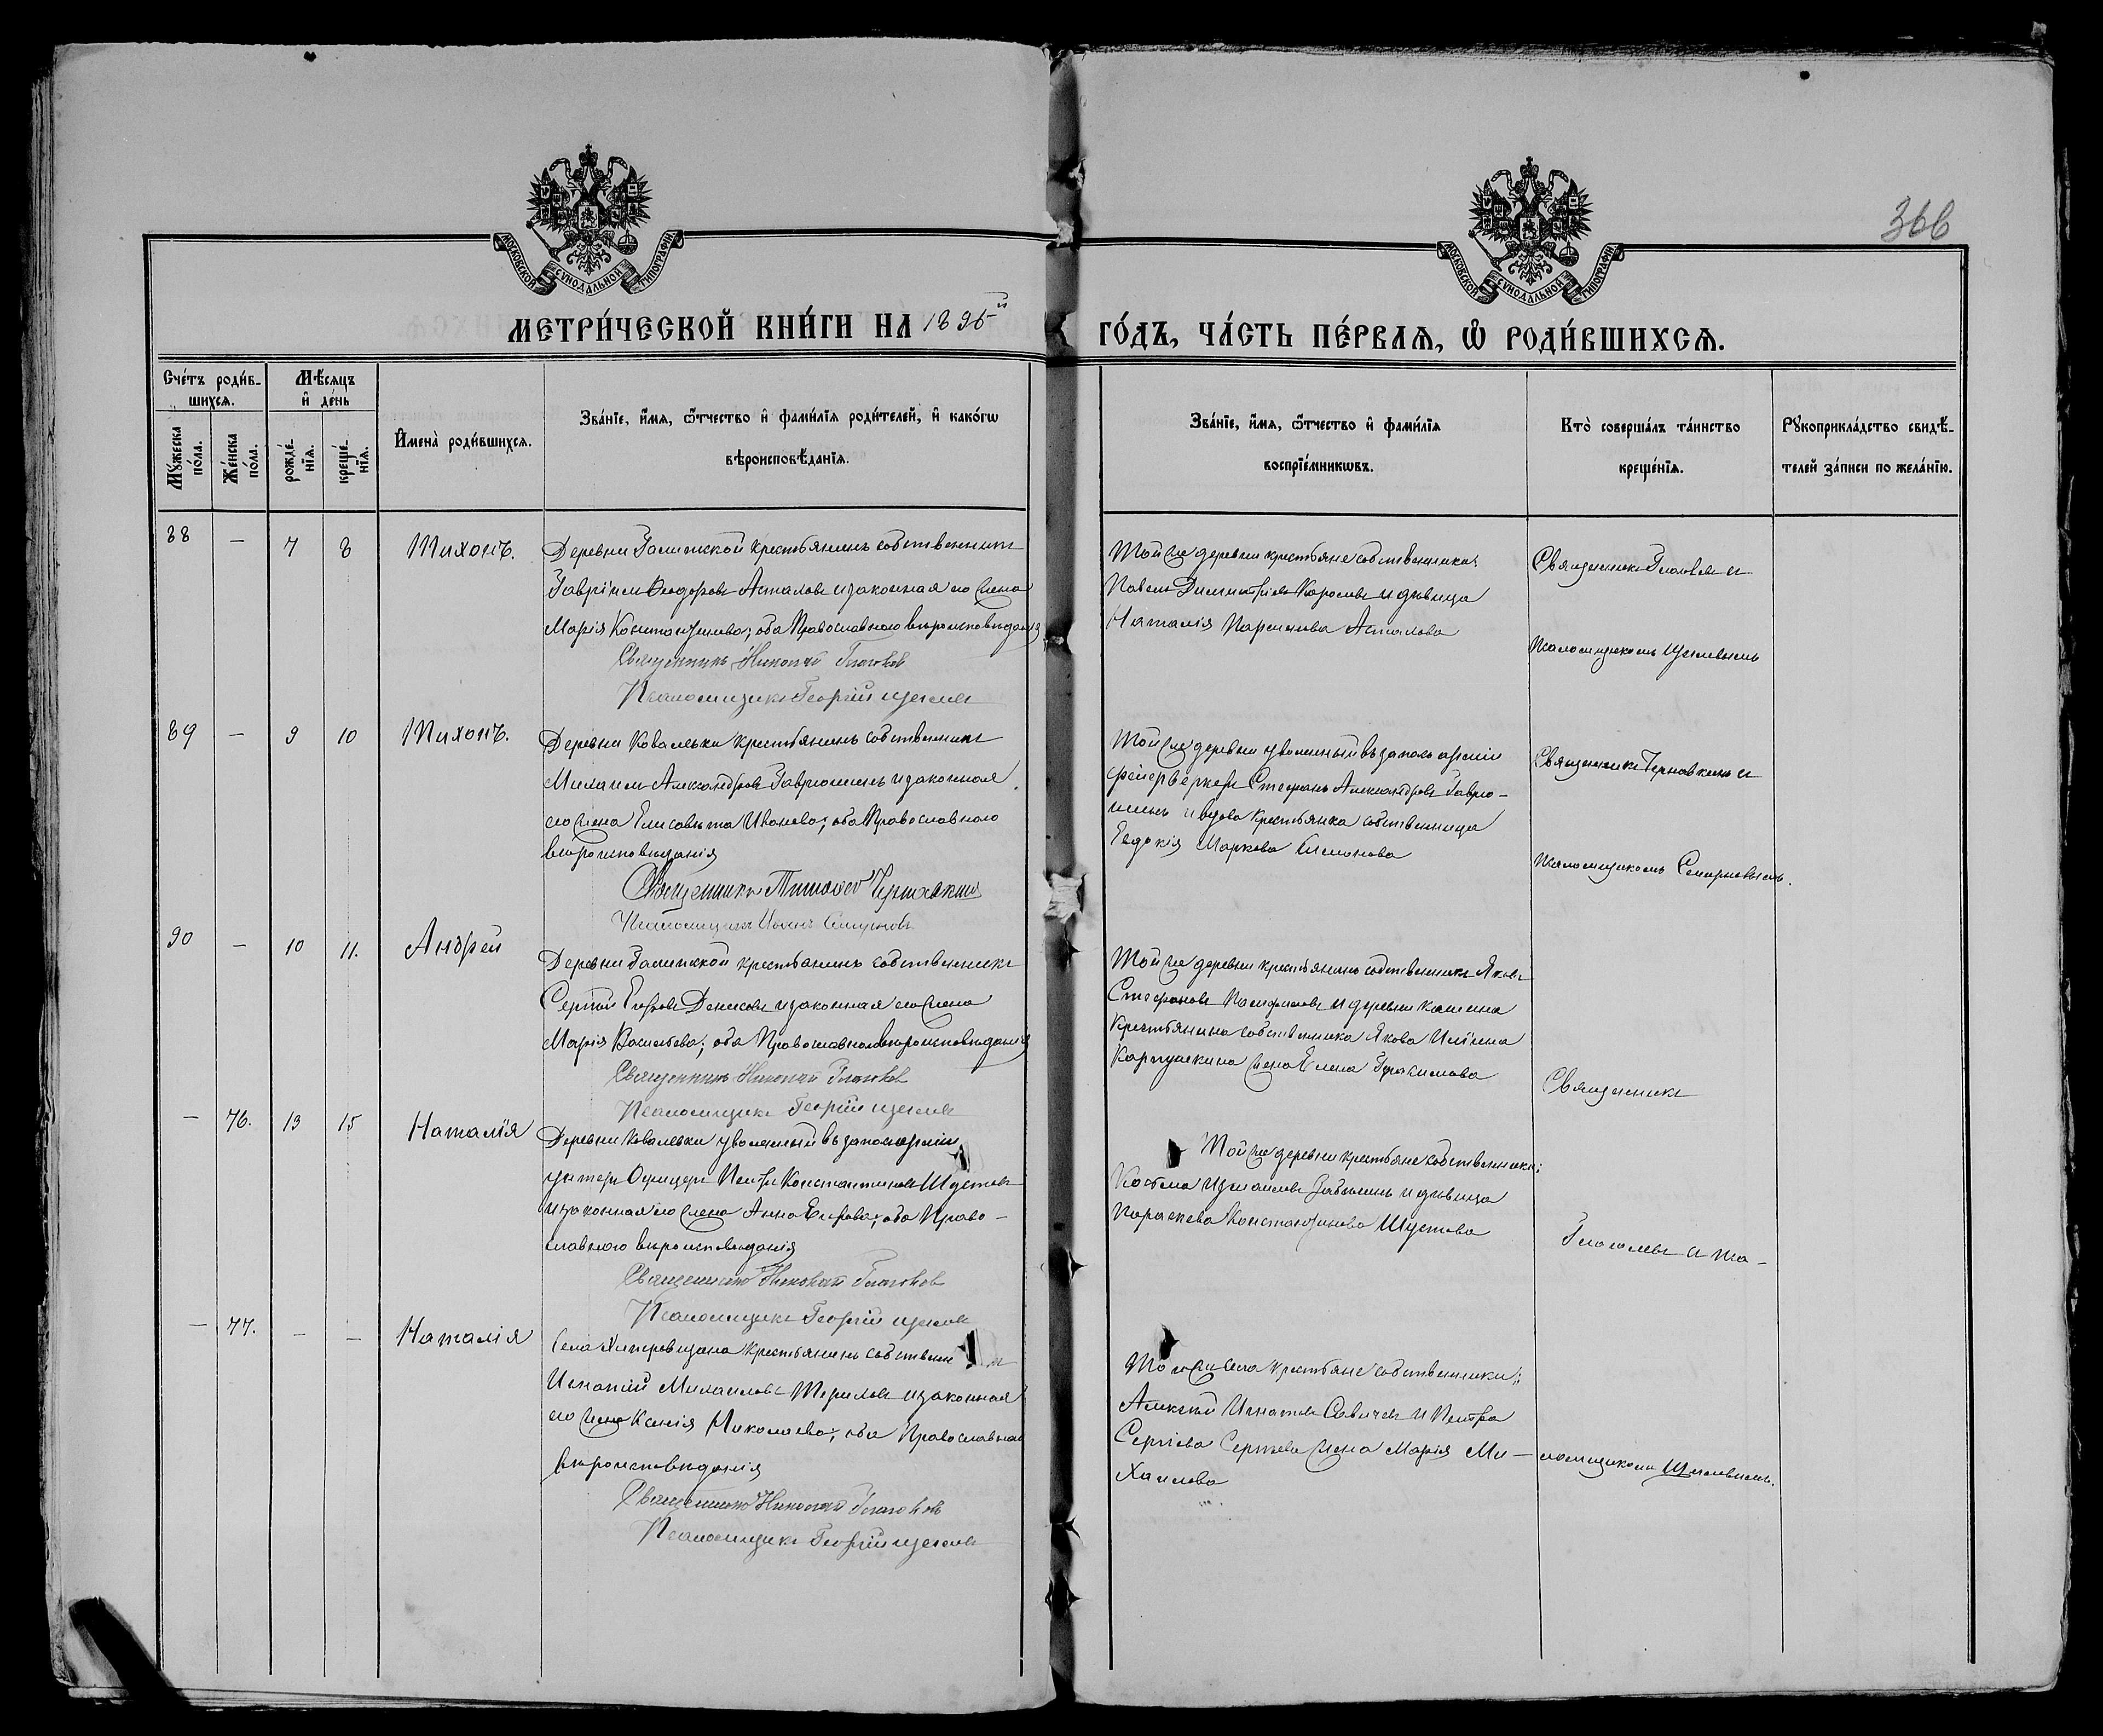 366
МОСКОВСКОЙ СѴНОДАЛЬНОЙ ТИПОГРАФІИ
МОСКОВСКОЙ СѴНОДАЛЬНОЙ ТИПОГРАФІИ
МЕТРИ́ЧЕСКОЙ КНИ́ГИ НА 1895й ГО́ДЪ, ЧА́СТЬ ПЕ́РВАѦ, Ѡ҆ РОДИ́ВШИХСѦ.
Сче́тъ роди́в-
шихсѧ.
Мѣ́сѧцъ
и҆ де́нь
Мꙋ́жеска по́ла.
Же́нска по́ла.
рожде́-
нїѧ.
креще́-
нїѧ.
И҆мена̀ роди́вшихсѧ.
Зва́нїе, и҆́мѧ, ѻ҆́тчество и҆ фами́лїѧ роди́телей, и҆ како́гѡ
вѣроисповѣ́данїѧ.
Зва́нїе, и҆́мѧ, ѻ҆́тчество и҆ фами́лїѧ
воспрїе́мникѡвъ.
Кто̀ соверша́лъ та́инство
креще́нїѧ.
Рꙋкоприкла́дство свидѣ́-
телей за́писи по жела́нїю.
88 — 7 8 Тихонъ.
Деревни Галицкой крестьянинъ собственникъ
Гавріилъ Ѳеодоровъ Асталовъ и законная его жена
Марія Константинова; оба Православнаго вѣроисповѣданія
Священникъ Николай Глаголевъ
Псаломщикъ Георгій
Той же деревни крестьяне собственники:
Павелъ Димитріевъ Королевъ и дѣвица
Наталія Асталова
Священникъ Глаголевъ и
псаломщикомъ
89 — 9 10 Тихонъ.
Деревни Ковалевки крестьянинъ собственникъ
Михаилъ Александровъ Гаврюшинъ и законная
его жена Елисавета Иванова; оба Православнаго
вѣроисповѣданія
Священникъ
Псаломщикъ Иванъ Смирновъ
Той же деревни уволенный въ запасъ арміи
фейерверкеръ Стефанъ Александровъ Гаврю-
шинъ и вдова крестьянка собственница
Евдокія Маркова
Священникъ и
псаломщикомъ Смирновымъ.
90 — 10 11. Андрей
Деревни Галицкой крестьянинъ собственникъ
Сергій Егоровъ Денисовъ и законная его жена
Марія Васильева; оба Православнаго вѣроисповѣданія
Священникъ Николай Глаголевъ
Псаломщикъ Георгій
Той же деревни крестьянинъ собственникъ Яковъ
Стефановъ и деревни
Крестьянина собственника Якова Ильина
Карпушкина жена Елена Герасимова
Священникъ
— 76. 13 15 Наталія
Деревни Ковалевки уволенный въ запасъ арміи
унтеръ Офицеръ Петръ Константиновъ Шустовъ
и законная его жена Анна Егорова; оба Право-
славнаго вѣроисповѣданія
Священникъ Николай Глаголевъ
Псаломщикъ Георгій
Той же деревни крестьяне собственники:
Косьма Измаиловъ и дѣвица
Параскева Константинова Шустова
Глаголевъ и пса-
— 77. — — Наталія
Села крестьянинъ собственникъ
Игнатій Михаиловъ и законная
его жена Ксенія Николаева; оба Православнаго
вѣроисповѣданія
Священникъ Николай Глаголевъ
Псаломщикъ Георгій
Того же села крестьяне собственники:
Алексѣй Игнатовъ Савичевъ и Петра
Сергіева Сергѣева жена Марія Ми-
хаилова
ломщикомъ